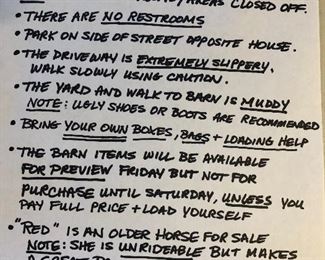 AREAS CLOSED OFF.
• THERE ARE NO RESTROOMS
• PARK ON SIDE OF STREET OPPOSITE HOUSE.
• THE DRIVEWAY IS EXTREMELY SLIPPERY.
WALK SLOWLY USING CAUTION.
• THE YARD AND WALK TO BARN IS MUDDY
NOTE: UGLY SHOES OR BOOTS ARE RECOMMENDED
• BRING YOUR OWN BOXES, BAGS + LOADING HELP
• THE BARN ITEMS WILL BE AVAILABLE
FOR PREVIEW FRIDAY BUT NOT FOR
PURCHASE UNTIL SATURDAY, UNLESS YOU
PAY FULL PRICE + LOAD YOURSELF
• "RED" IS AN OLDER HORSE FOR SALE
NOTE: SHE IS UNRIDEABLE BUT MAKES
A GREAT